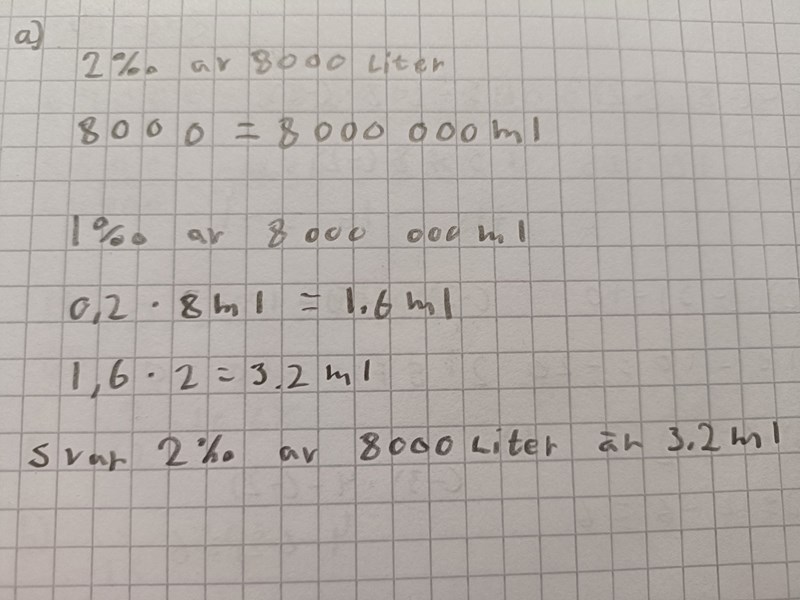 a)
2‰ av 8000 Liter
8000 = 8000 000 ml
1‰ av 8000 000 ml
0,2 · 8 ml = 1.6 ml
1,6 · 2 = 3.2 ml
Svar 2‰ av 8000 Liter är 3.2 ml